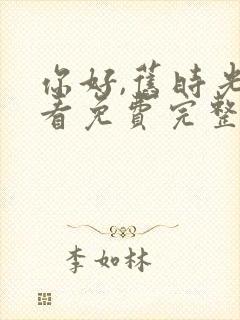 你好,旧时光
看免费完整
李如林